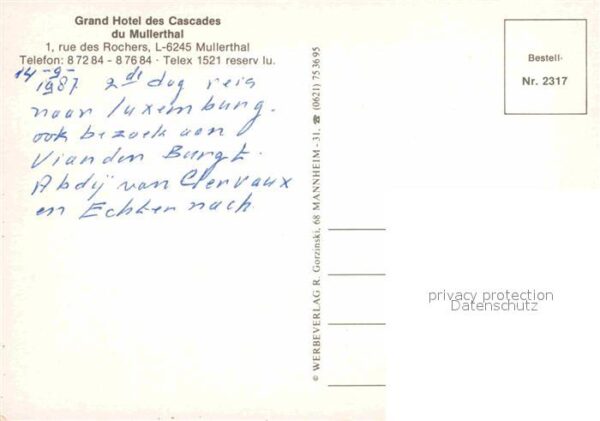 Grand Hotel des Cascades
du Mullerthal
1, rue des Rochers, L-6245 Mullerthal
Telefon: 8 72 84 - 8 76 84 · Telex 1521 reserv lu.
14-9-
1987 2de dag reis
naar luxemburg.
ook bezoek aan
Vianden Burgt.
Abdij van Clervaux
en Echternach
© WERBEVERLAG R. Gorzinski, 68 MANNHEIM - 31, ☎ (0621) 75 36 95
Bestell-
Nr. 2317
privacy protection
Datenschutz